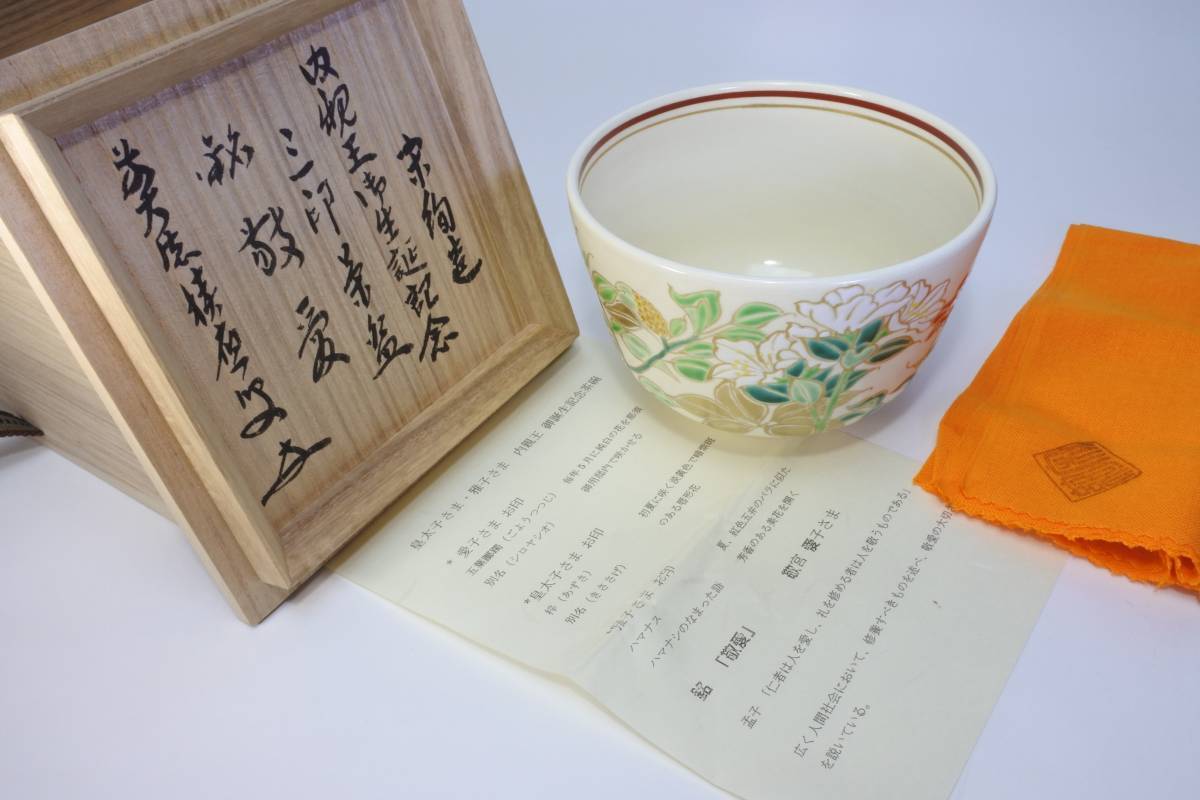 宗絢造
内親王御生誕記念
三印茶盌
銘 敬愛
皇太子さま・雅子さま 内親王 御誕生記念茶碗
*愛子さま お印
五葉躑躅(ごようつつじ) 毎年5月に純白の花を那須
別名(シロヤシオ) 御用邸内で咲かせる
*皇太子さま お印
梓(あずさ) 初夏に咲く淡黄色で暗紫斑
別名(きささげ) のある唇形花
子さま お印
ハマナス 夏、紅色五弁のバラに似た
ハマナシのなまった語 芳香のある美花を開く
銘 「敬愛」 敬宮 愛子さま
孟子 「仁者は人を愛し、礼を修める者は人を敬うものである」
広く人間社会において、修養すべきものを述べ、敬愛の大切
を説いている。